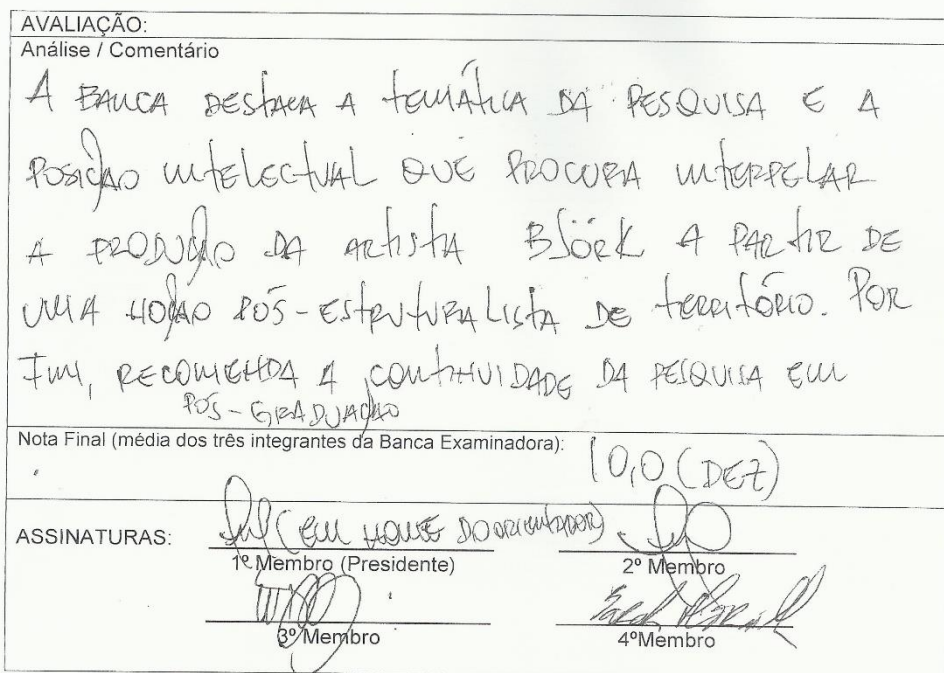 AVALIAÇÃO:
Análise / Comentário
A BANCA DESTACA A TEMÁTICA DA PESQUISA E A
POSIÇÃO INTELECTUAL QUE PROCURA INTERPELAR
A PRODUÇÃO DA ARTISTA BJÖRK A PARTIR DE
UMA NOÇÃO PÓS-ESTRUTURALISTA DE TERRITÓRIO. POR
FIM, RECOMENDA A CONTINUIDADE DA PESQUISA EM
PÓS-GRADUAÇÃO
Nota Final (média dos três integrantes da Banca Examinadora): 10,0 (DEZ)
ASSINATURAS: (EM NOME DO ORIENTADOR)
1º Membro (Presidente) 2º Membro
3º Membro 4ºMembro